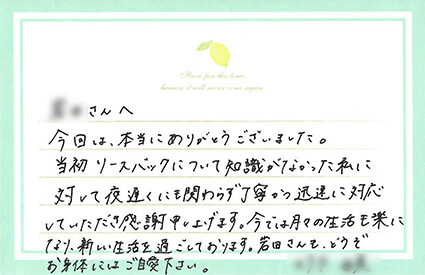 Have fun this time,
because it will never come again
さんへ
今回は、本当にありがとうございました。
当初リースバックについて知識がなかった私に
対して夜遅くにも関わらず丁寧かつ迅速に対応
していただき感謝申し上げます。今では月々の生活も楽に
なり、新しい生活を過ごしております。岩田さんも、どうぞ
お身体にはご自愛下さい。